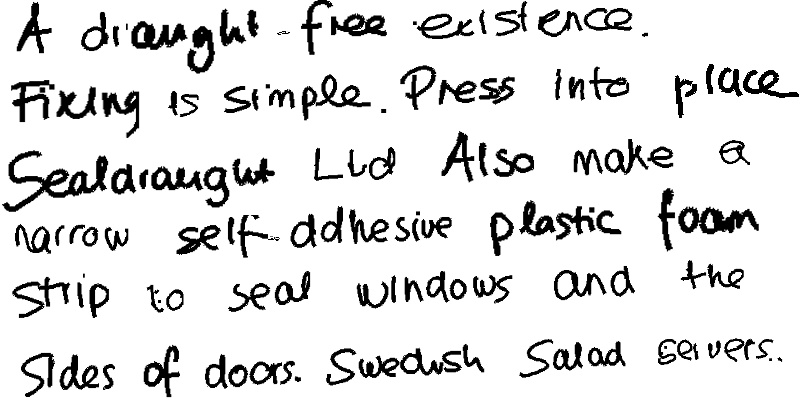 A draught-free existence.
Fixing is simple. Press into place
Sealdraught Ltd Also make a
narrow self-adhesive plastic foam
strip to seal windows and the
sides of doors. Swedish Salad servers.